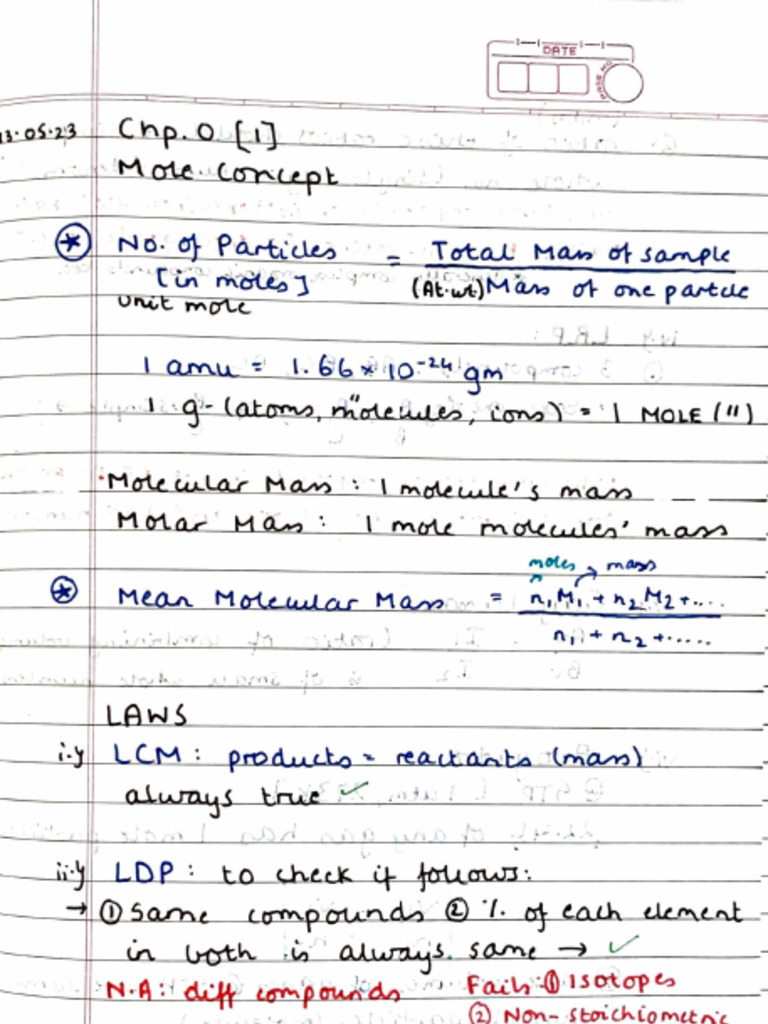 DATE
PAGE NO
13.05.23 Chp. 0 [1]
Mole Concept
* No. of Particles = Total Mass of sample
[in moles] (At.wt) Mass of one particle
unit mole
1 amu = 1.66 * 10⁻²⁴ gm
1 g- (atoms, molecules, ions) = 1 MOLE (")
Molecular Mass : 1 molecule's mass
Molar Mass : 1 mole molecules' mass
moles → mass
* Mean Molecular Mass = n₁M₁ + n₂M₂ + ....
n₁ + n₂ + .....
LAWS
i.y LCM : products = reactants (mass)
always true ✓
ii.y LDP : to check if follows:
→ ① Same compounds ② %. of each element
in both is always same → ✓
N.A : diff compounds Fails: ① Isotopes
② Non-stoichiometric